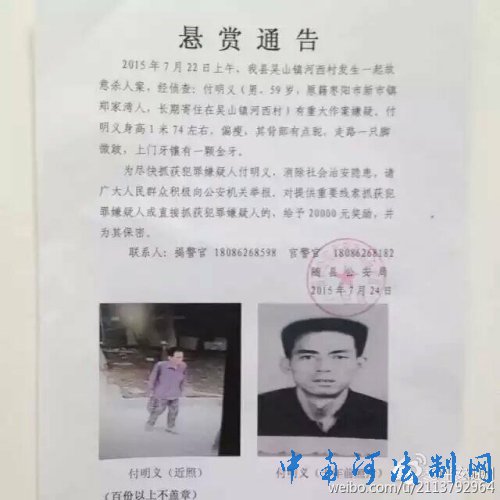 悬赏通告
2015年7月22日上午，我县吴山镇河西村发生一起故
意杀人案，经侦查：付明义（男，59岁，原籍枣阳市新市镇
郑家湾人，长期寄住在吴山镇河西村）有重大作案嫌疑。付
明义身高1米74左右，偏瘦，其背部有点驼，走路一只脚
微跛，上门牙镶有一颗金牙。
为尽快抓获犯罪嫌疑人付明义，消除社会治安隐患，请
广大人民群众积极向公安机关举报，对提供重要线索抓获犯
罪嫌疑人或直接抓获犯罪嫌疑人的，给予20000元奖励，并
为其保密。
联系人：揭警官 18086268598 官警官 18086268182
随县公安局
2015年7月24日
付明义（近照）
付明义（
（百份以上不盖章）
中南河法制网
weibo.com/u/2113792964